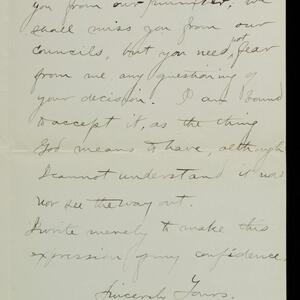 you from our number. We
shall miss you from our
councils, but you need not fear
from me any questioning of
your decision. I am bound
to accept it, as the thing
God means to have, although
I cannot understand it now
nor see the way out.
I write merely to make this
expression of my confidence.
Sincerely Yours,